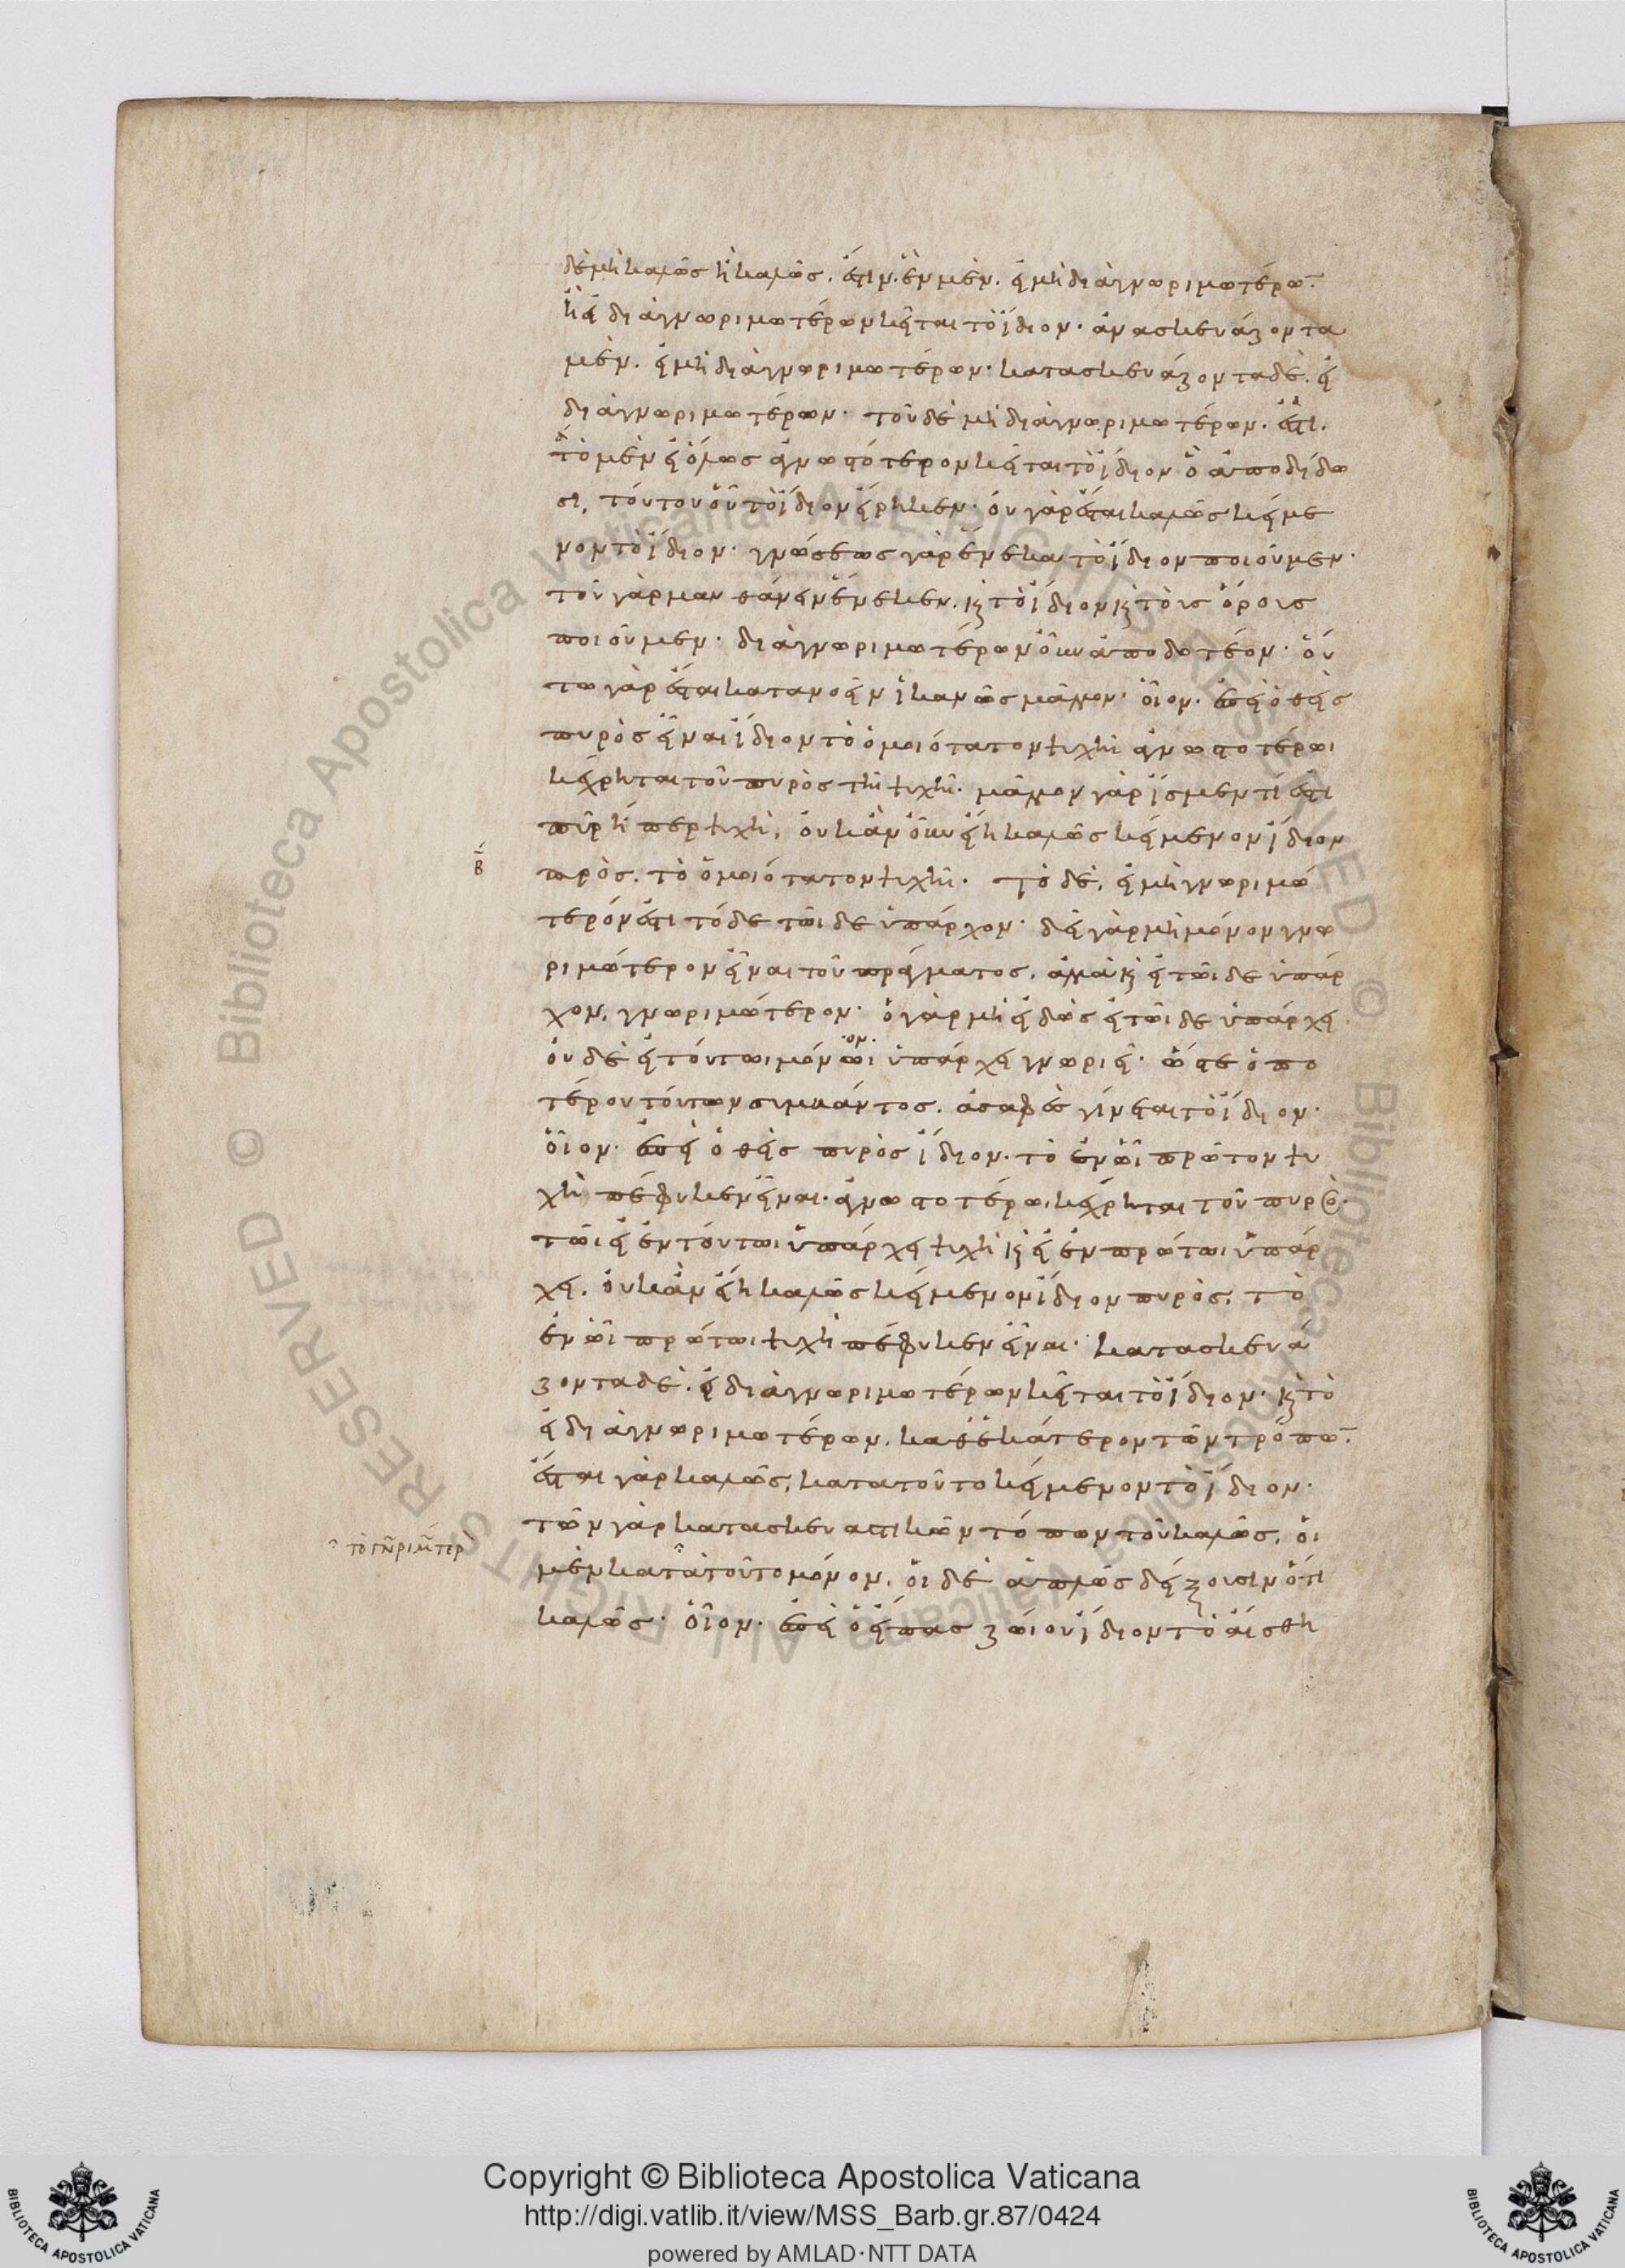 δὲ μὴ καλῶς ἢ καλῶς. ἔστιν. ἓν μὲν. εἰ μὴ διὰ γνωριμωτέρω̅
ἢ εἰ διὰ γνωριμωτέρων κεῖται τὸ ἴδιον· ἀνασκευάζοντα
μὲν. εἰ μὴ διὰ γνωριμωτέρων· κατασκευάζοντα δὲ. εἰ
διὰ γνωριμωτέρων· τοῦ δὲ μὴ διὰ γνωριμωτέρων. ἔστι.
τὸ μὲν εἰ ὅλως ἀγνωστότερον κεῖται τὸ ἴδιον ὃ ἀποδίδω
σι, τούτου οὗ τὸ ἴδιον εἴρηκεν· οὐ γὰρ ἔσται καλῶς κείμε
νον τὸ ἴδιον· γνώσεως γὰρ ἕνεκα τὸ ἴδιον ποιούμεν·
τοῦ γὰρ μανθάνειν ἕνεκεν. ϗ τὸ ἴδιον ϗ τοὺς ὅρους
ποιοῦμεν· διὰ γνωριμωτέρων οὖν ἀποδοτέον· οὕ
τω γὰρ ἔσται κατανοεῖν ἱκανῶς μᾶλλον· οἷον. ἐπεὶ ὁ θεὶς
πυρὸς εἶναι ἴδιον τὸ ὁμοιότατον ψυχῆι ἀγνωστοτέρωι
κέχρηται τοῦ πυρὸς τῆι ψυχῆι· μᾶλλον γὰρ ἴσμεν τί ἐστι
πῦρ ἤπερ ψυχὴ, οὐκ ἂν οὖν εἴη καλῶς κείμενον ἴδιον
β
πρὸς. τὸ ὁμοιότατον ψυχῆι· Τὸ δὲ, εἰ μὴ γνωριμώ
τερόν ἐστι τόδε τῶιδε ὑπάρχον· δεῖ γὰρ μὴ μόνον γνω
ριμώτερον εἶναι τοῦ πράγματος, ἀλλὰ ϗ εἰ τῶιδε ὑπάρ
χον, γνωριμώτερον· ὁ γὰρ μὴ εἰδὼς εἰ τῶιδε ὑπάρχει.
οὐδὲ εἰ τούτωι μόνωι ὑπάρχει γνωριεῖ· ὥστε ὁπο
ον
τέρου τούτων συμβάντος. ἀσαφὲς γίνεται τὸ ἴδιον·
οἷον· ἐπεὶ ὁ θεὶς πυρὸς ἴδιον. τὸ ἐν ὧι πρῶτον ψυ
χὴ πέφυκεν εἶναι. ἀγνωστοτέρωι κέχρηται τοῦ πυρὸς·
τῶι εἰ ἐν τούτωι ὑπάρχει ψυχὴ ϗ εἰ ἐν πρώτωι ὑπάρ
χει. οὐκ ἂν εἴη καλῶς κείμενον ἴδιον πυρὸς, τὸ
ἐν ὧι πρώτωι ψυχὴ πέφυκεν εἶναι· κατασκευά
ζοντα δὲ. εἰ διὰ γνωριμωτέρων κεῖται τὸ ἴδιον· ϗ τὸ
εἰ διὰ γνωριμωτέρων. καθ' ἑκάτερον τῶν τρόπω̅·
ἔσται γὰρ καλῶς, κατατοῦτο κείμενον τὸ ἴδιον·
τῶν γὰρ κατασκευαστικῶν τόπων τοῦ καλῶς, οἱ
μὲν κατὰ τοῦτο μόνον. οἱ δὲ ἁπλῶς δείξουσιν ὅτι
καλῶς· οἷον· ἐπεὶ ὁ εἴπας ζώιου ἴδιον τὸ αἴσθη